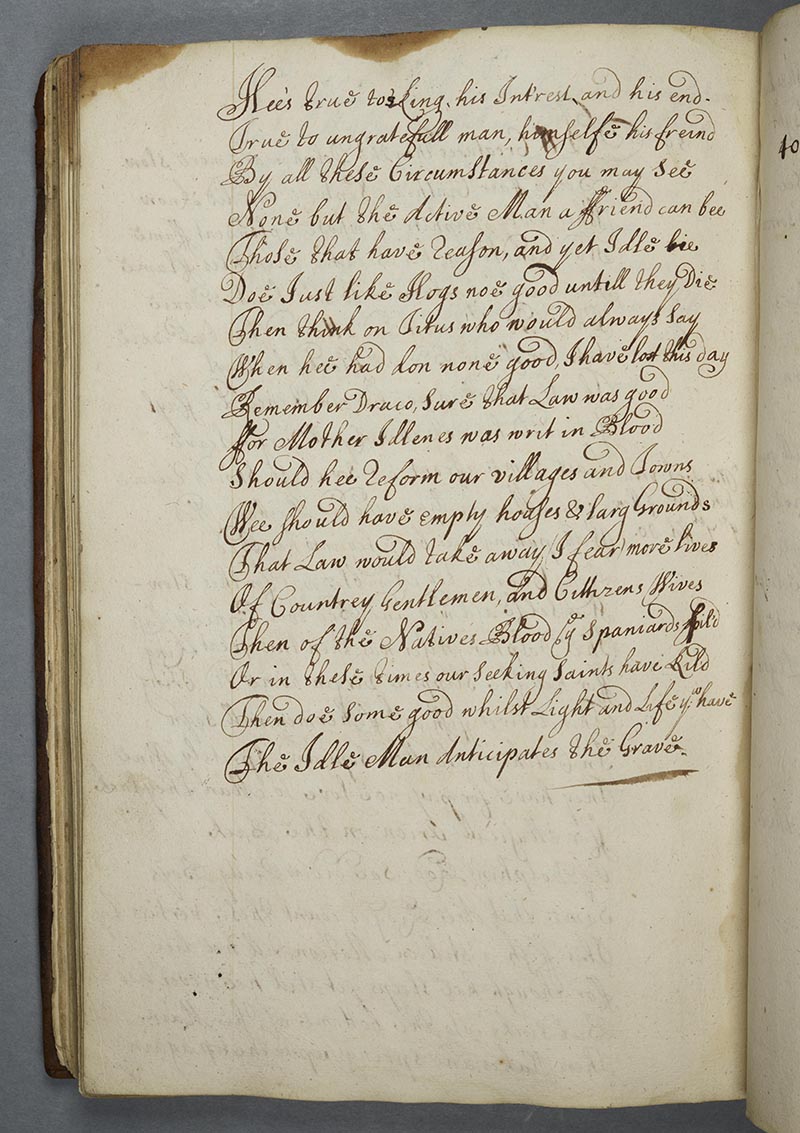 Hee's true to's King, his Int'rest, and his end.
True to ungratefull man, himselfe his freind
By all these Circumstances you may see
None but the Active Man a ffriend can bee
Those that have reason, and yet Idle lie
Doe Just like Hogs noe good untill they Die.
Then think on Titus who would always say
When hee had don none good, I have lost this day
Remember Draco, sure that Law was good
ffor Mother Idlenes was writ in Blood
Should hee reform our villages and Towns
Wee should have empty houses & larg Grounds
That Law would take away (I fear) more lives
Of Countrey Gentlemen, and Cittizens Wives
Then of the Natives Blood ye Spaniards spild
Or in these times our seeking Saints have Kild
Then doe some good whilst Light and Life you have
The Idle Man Anticipates the Grave.
40